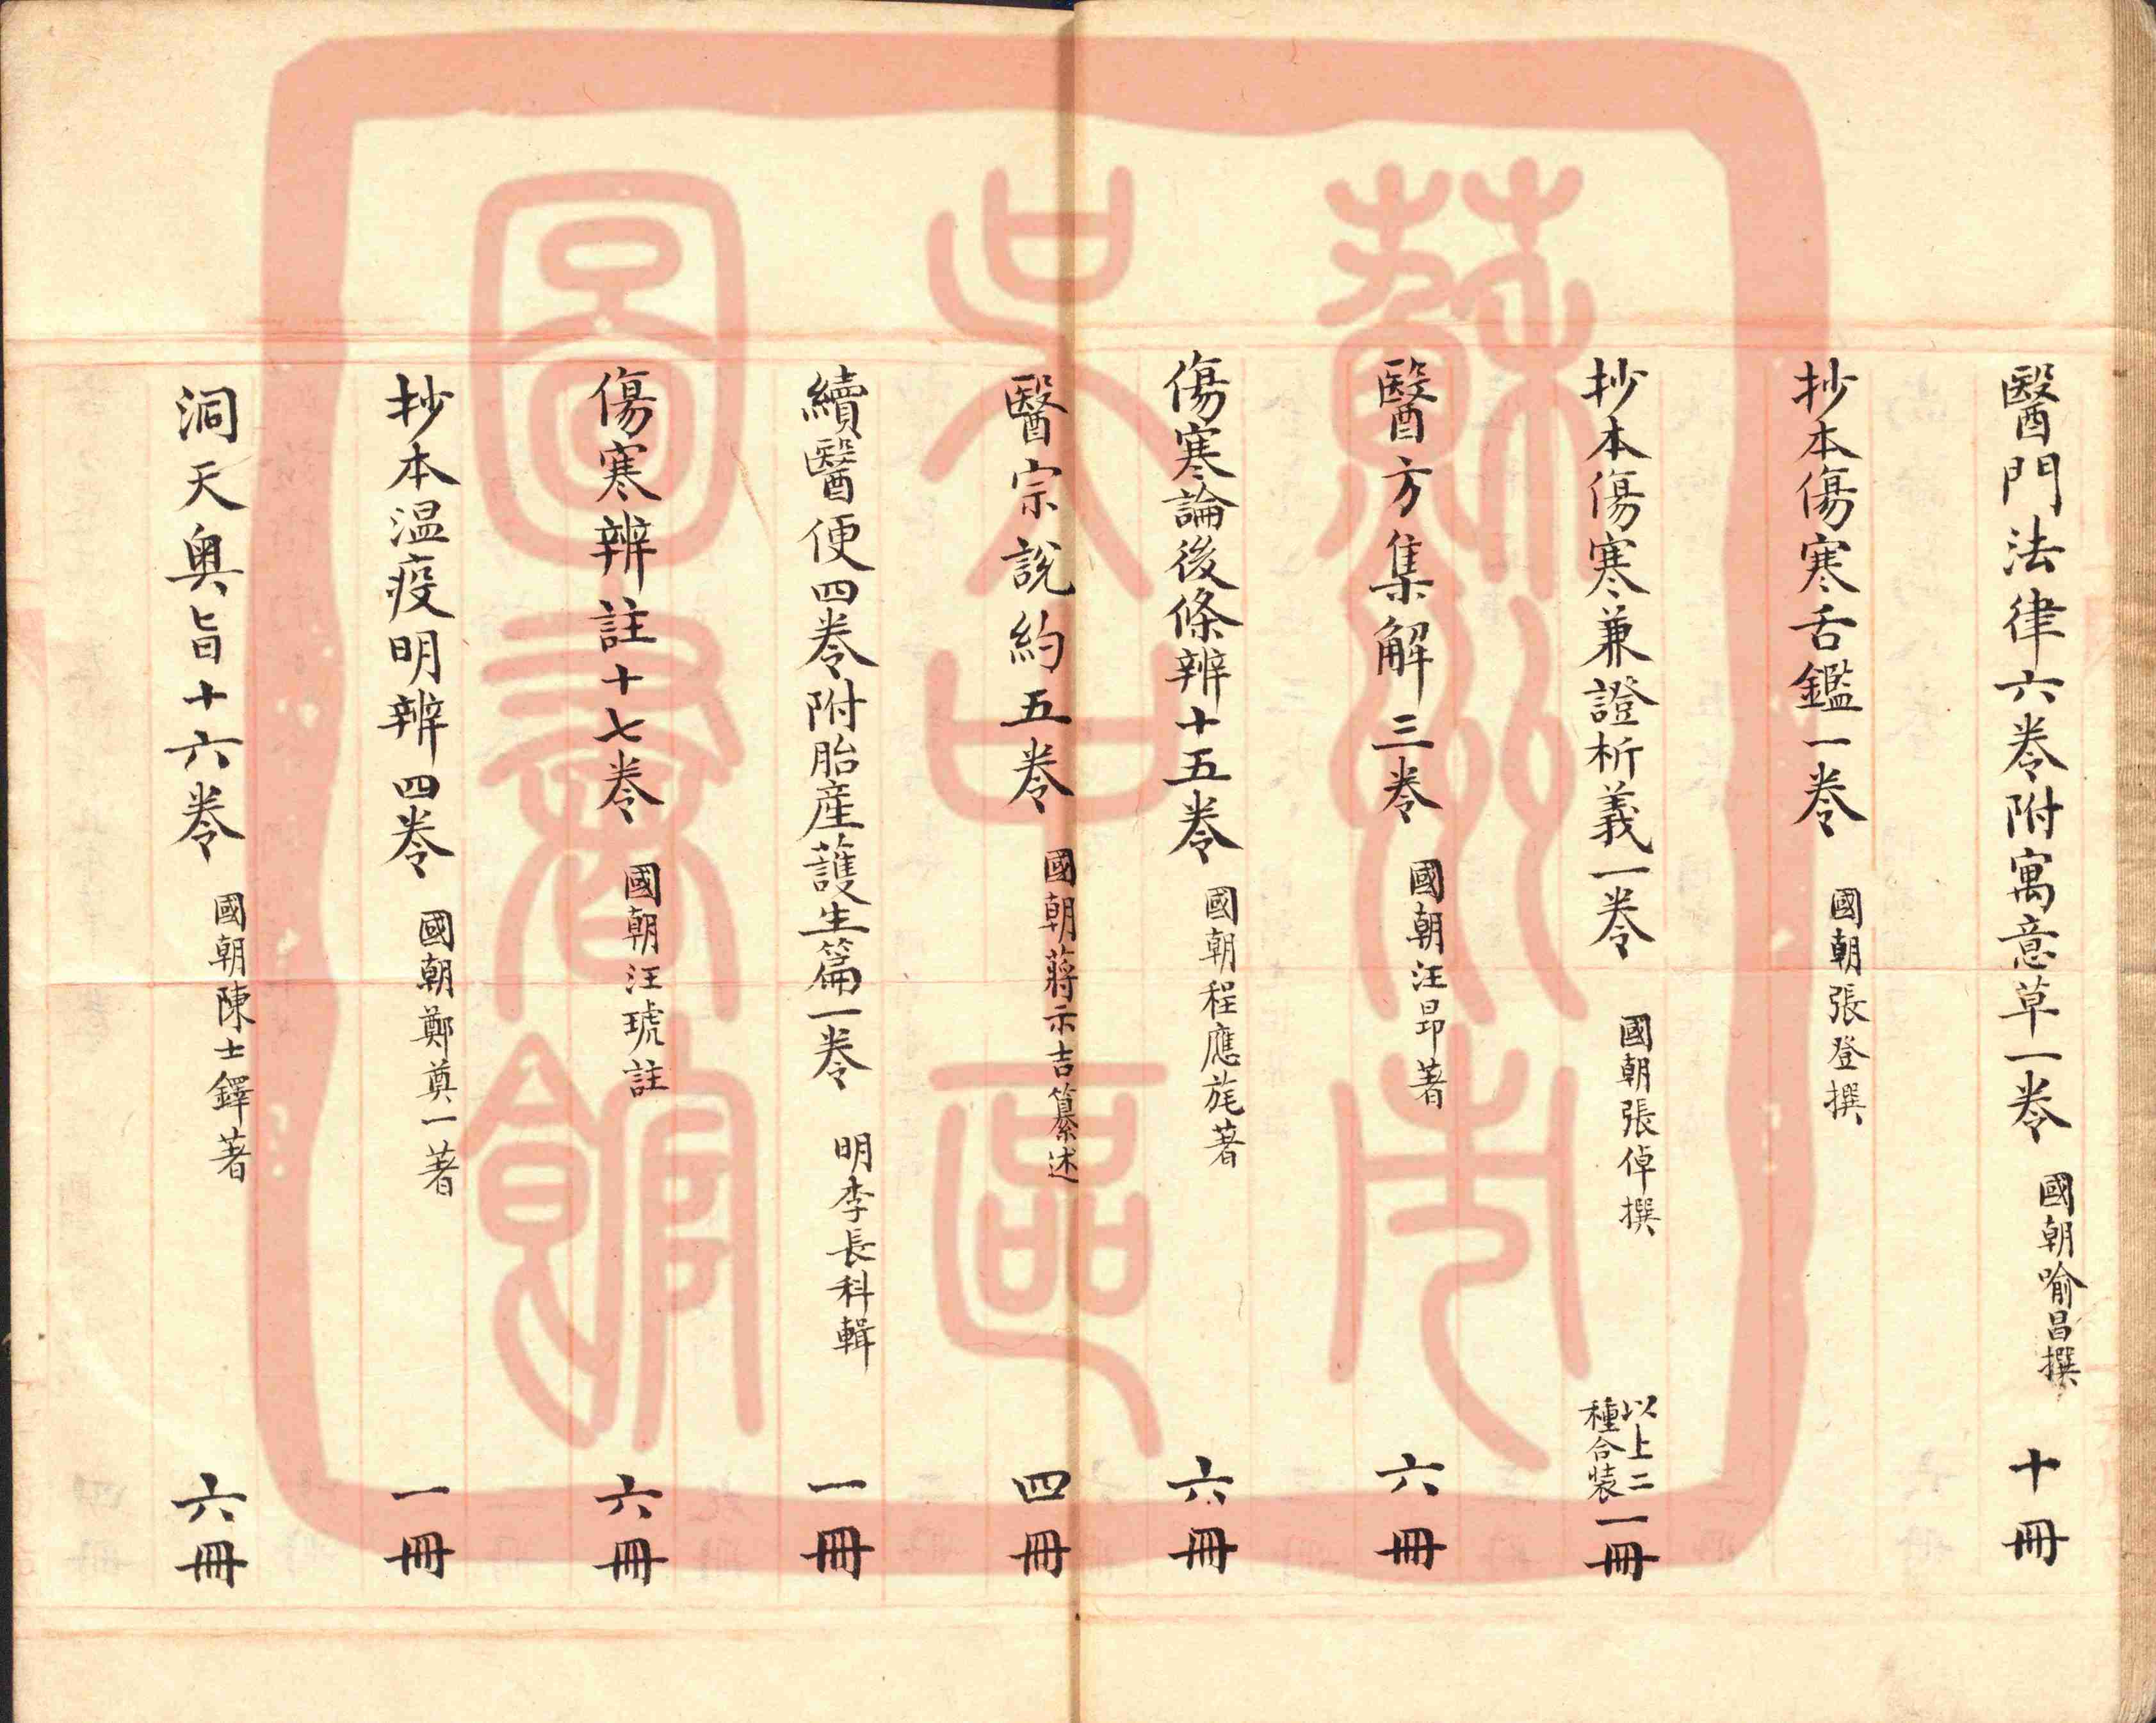 醫門法律六卷附寓意草一卷 國朝喻昌撰 十冊
抄本傷寒舌鑑一卷 國朝張登撰
抄本傷寒兼證析義一卷 國朝張倬撰 以上二種合裝 一冊
醫方集解三卷 國朝汪昂著 六冊
傷寒論後條辨十五卷 國朝程應旄著 六冊
醫宗說約五卷 國朝蔣示吉纂述 四冊
續醫便四卷附胎產護生篇一卷 明李長科輯 一冊
傷寒辨註十七卷 國朝汪琥註 六冊
抄本温疫明辨四卷 國朝鄭奠一著 一冊
洞天奥旨十六卷 國朝陳士鐸著 六冊
蘇州市
吴中區
圖書館